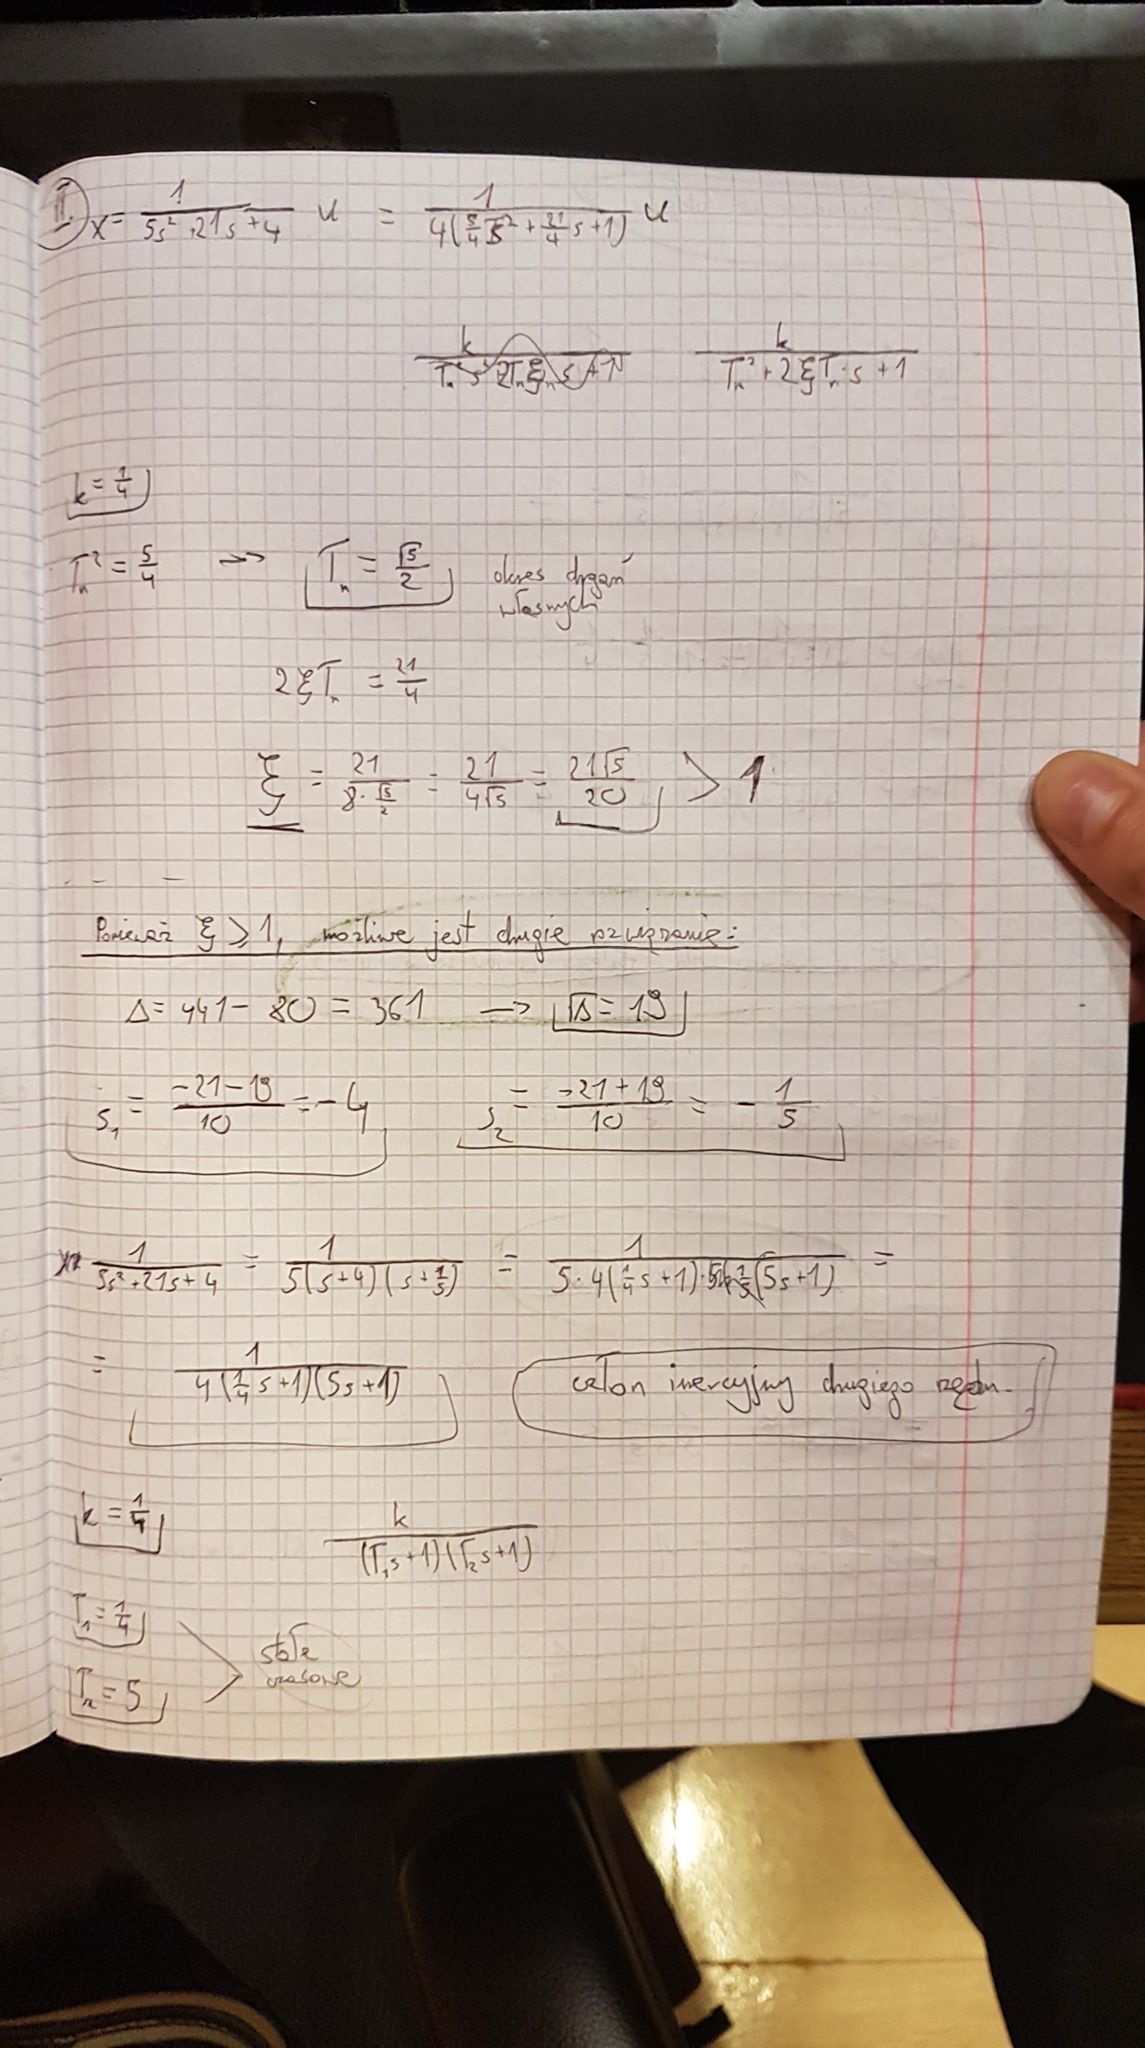 II. x = 1/(5s² + 21s + 4) u = 1/(4(5/4 s² + 21/4 s + 1)) u
k/(Tn² + 2ξTn·s + 1)
k = 1/4
Tn² = 5/4 → Tn = √5/2 okres drgań
własnych
2ξTn = 21/4
ξ = 21/(8·√5/2) = 21/(4√5) = 21√5/20 > 1
Ponieważ ξ ≥ 1, możliwe jest drugie rozwiązanie:
Δ = 441 - 80 = 361 → √Δ = 19
s₁ = (-21-19)/10 = -4 s₂ = (-21+19)/10 = -1/5
x = 1/(5s² + 21s + 4) = 1/(5(s+4)(s+1/5)) = 1/(5·4(1/4 s+1)·1/5(5s+1)) =
= 1/(4(1/4 s+1)(5s+1)) człon inercyjny drugiego rzędu.
k = 1/4 k/((T₁s+1)(T₂s+1))
T₁ = 1/4
stałe
czasowe
T₂ = 5